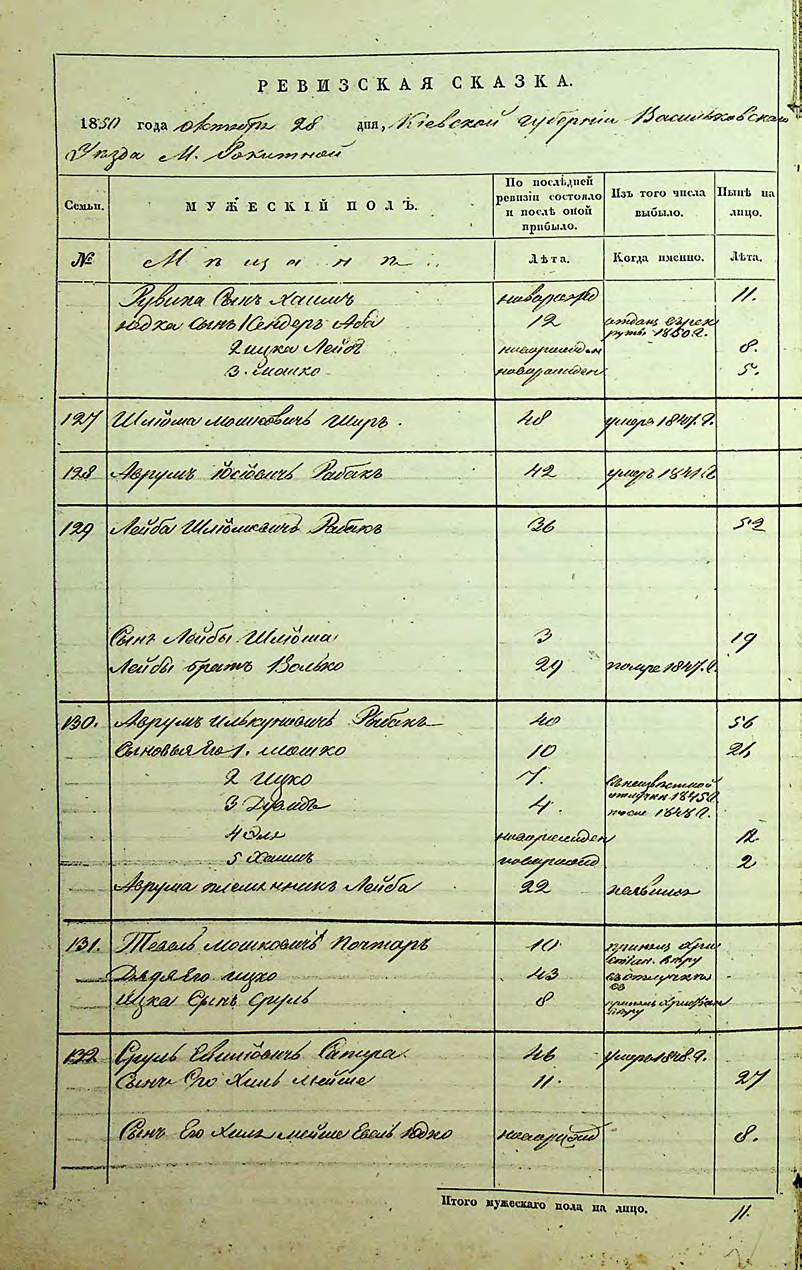 РЕВИЗСКАЯ СКАЗКА.
1850 года октября 28 дня, Кіевской губерніи Васильковскаго
Уезда М. Рокитной
Семьи. МУЖЕСКІЙ ПОЛЪ. По послѣдней ревизіи состояло и послѣ оной прибыло. Изъ того числа выбыло. Нынѣ на лицо.
№ Мѣщане Лѣта. Когда именно. Лѣта.
Рувина Сынъ Хаимъ новорожд 11.
Юдка Сынъ Кендеръ Аба 12 отданъ рекруты 1850 г.
2 Ицка Лейба новорожден 8.
3. Мошко новорожден 5.
127 Шлюома Мошковичъ Ширъ. 48 умеръ 1841. г.
128 Аврумъ Юсіовичъ Рабакъ 42 умеръ 1841 г
129 Лейба Шліомовичъ Рабакъ 36 52
Сынъ Лейбы Шліома 3 19
Лейбы братъ Волько 29 1847. г.
130. Аврумъ Рыбакъ 40 56
Сыновья Его 1. Мошко 10 26
2 Ицко 7. 1845 г.
3 Дувидъ 4. после 1848 г.
4 новорожден 12
5 Хаимъ новорожд 2
Аврума племянникъ Лейба 22
131. Мошковичъ Почтаръ 10 Хри
Дядя Его Ицко 43 въ отлучки
Ицка Сынъ Сруль 8
132 Сруль 46 умеръ 1848. г.
Сынъ Его Хиль Мейше 11. 27
Сынъ Его Хиль Мейше Юдко новорожд 8.
Итого мужескаго пола на лицо. 11.